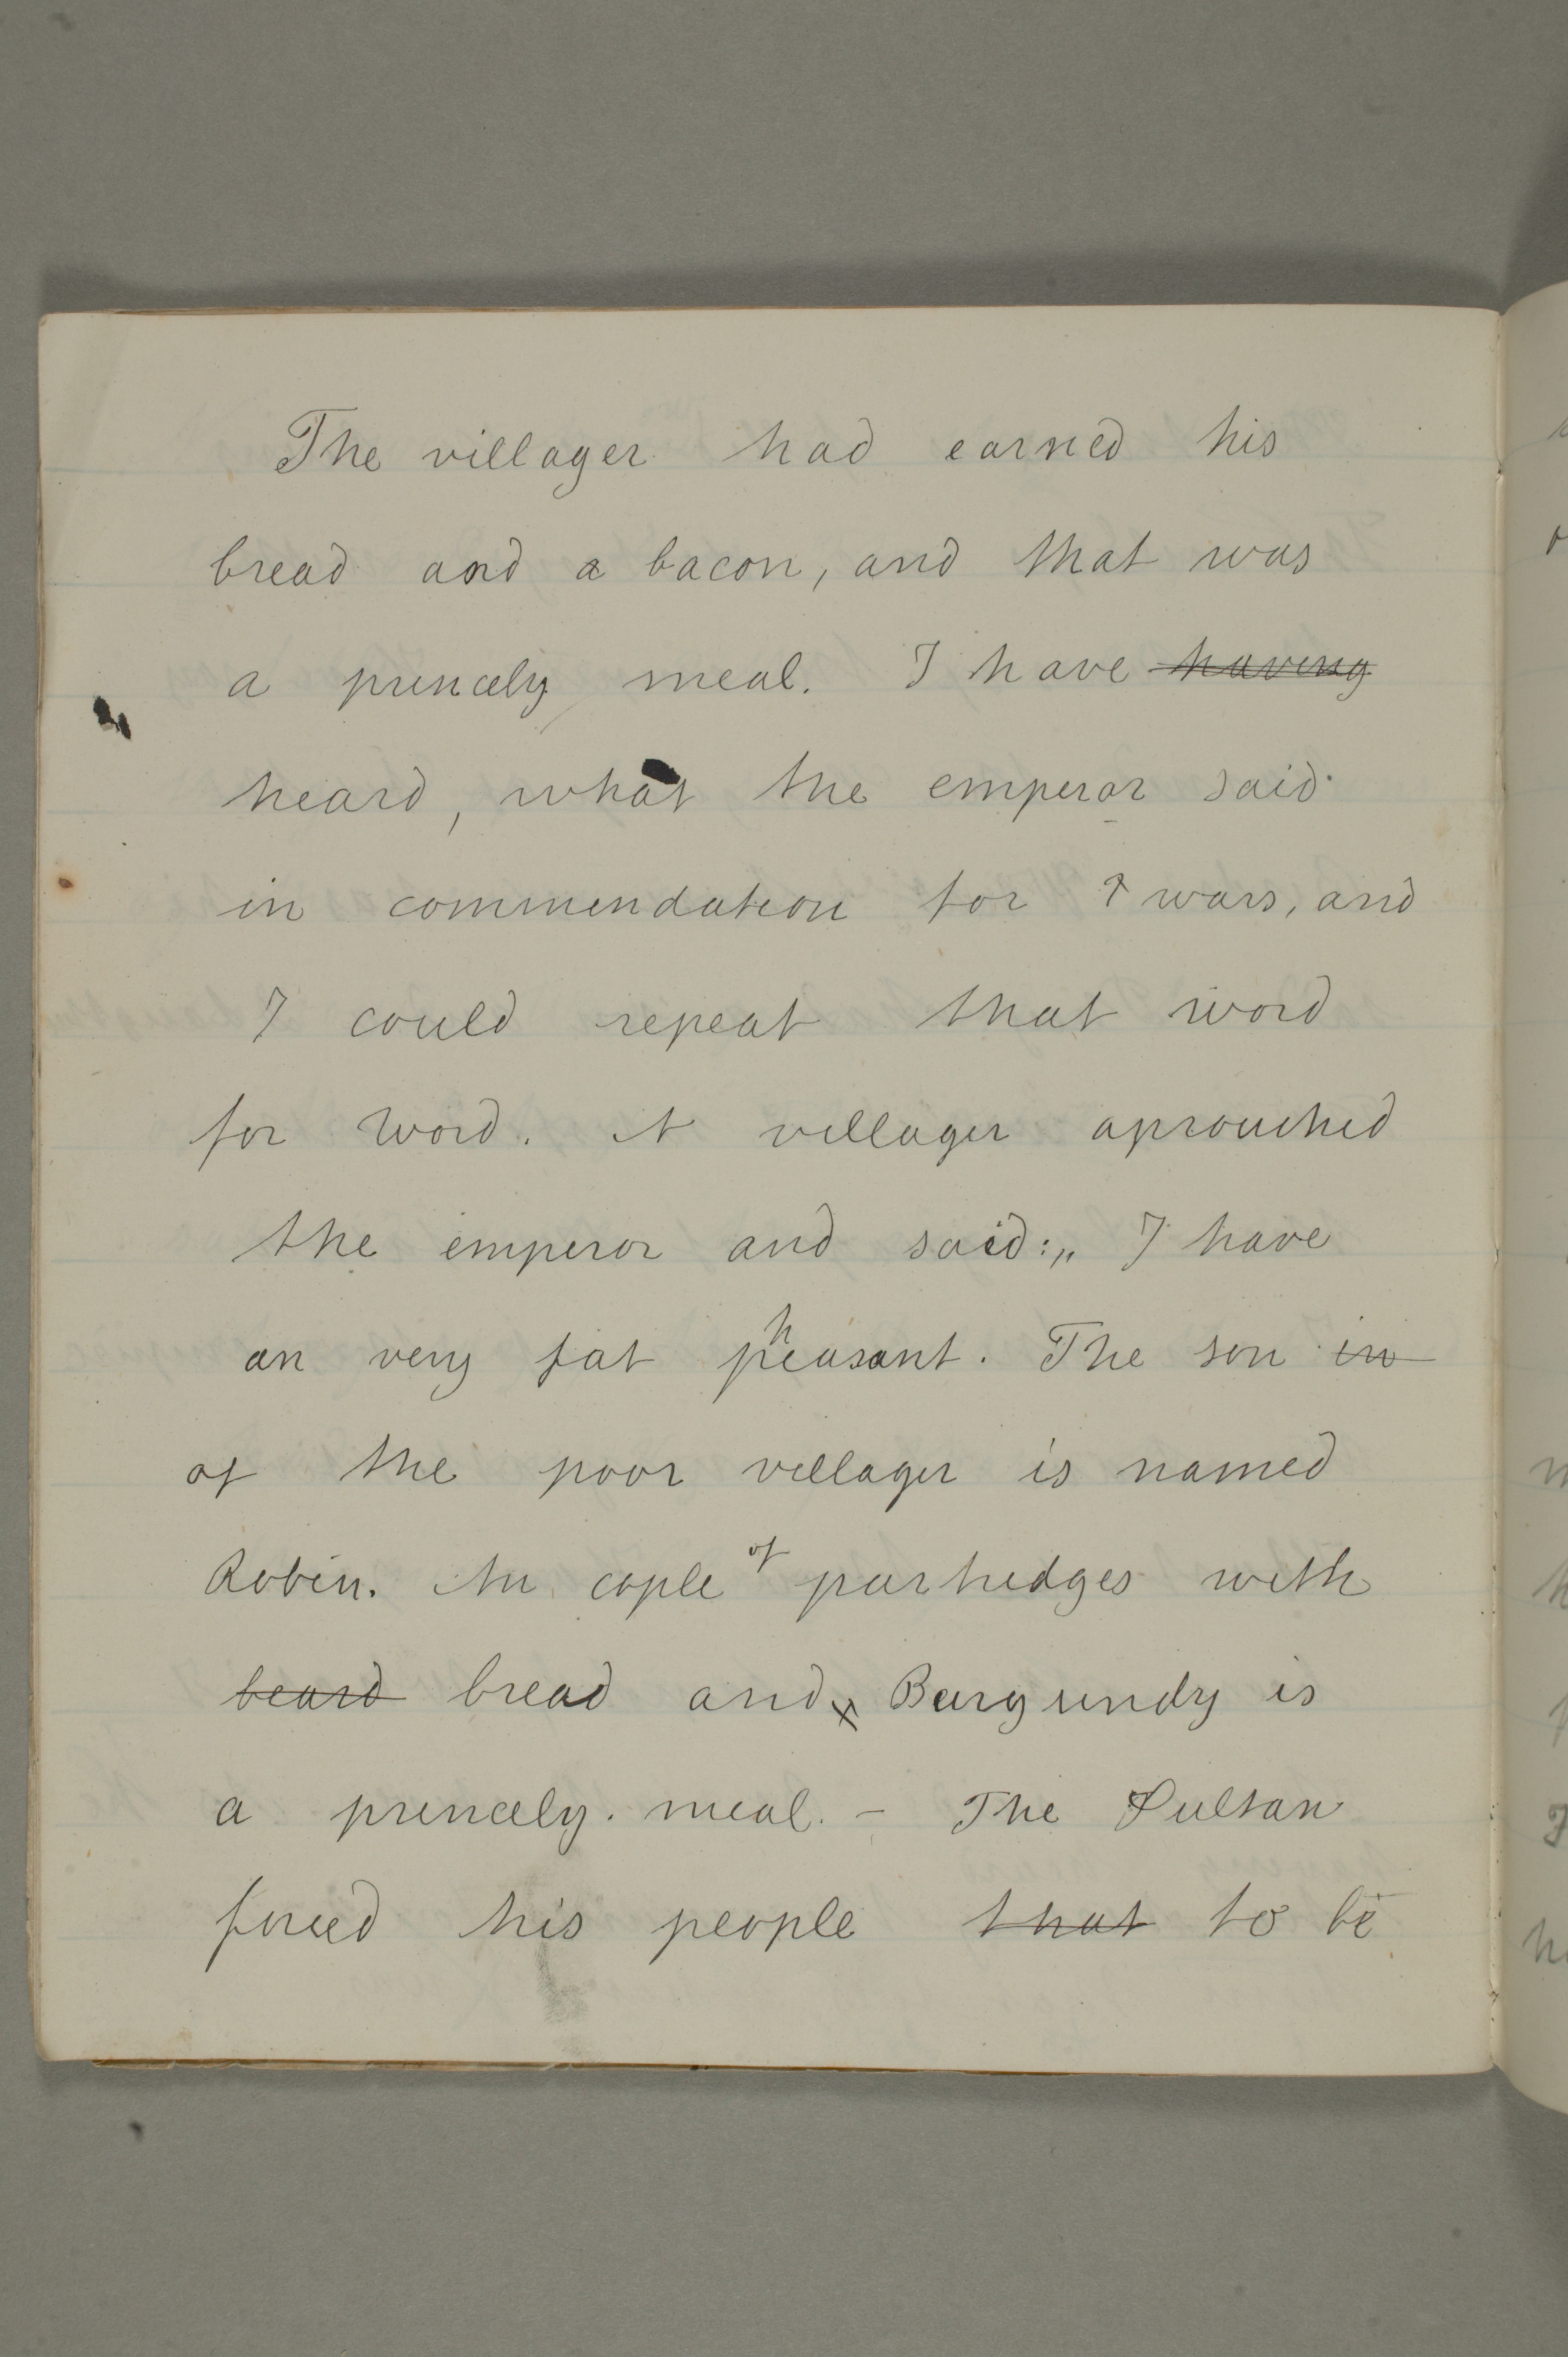 The villager had earned his
bread and a bacon, and that was
a princely meal. I have having
heard, what the emperor said
in commendation for wars, and
I could repeat that word
for word. A villager aprouched
the emperor and said:„ I have
an very fat pheasant. The son in
of the poor villager is named
Robin. An cople of parhedges with
beard bread and Burgundy is
a princely. meal. - The Sultan
forced his people that to be